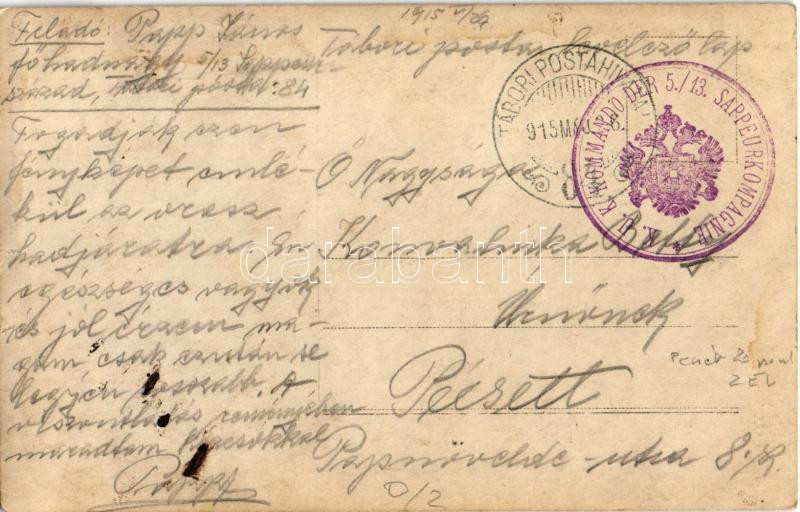 1915 V/29
Feladó: Papp János
főhadnagy 5/13 Sappeur-
század, tábori posta: 84
Tábori posta levelező lap
TÁBORI POSTAHIVATAL
915 MÁJ.
K. U. K. KOMMANDO DER 5./13. SAPPEURKOMPAGNIE *
Fogadják ezen
fényképet emlé-
kül az orosz
hadjáratra. Én
egészséges vagyok
és jól érzem ma-
gam csak ezután se
legyen rosszabb. A
viszontlátás reményében
maradtam kézcsókkal
Papp
Ő Nagysága
Betty
Urnőnek
Pápnövelde-utca 8. sz.
darabanth
0/2